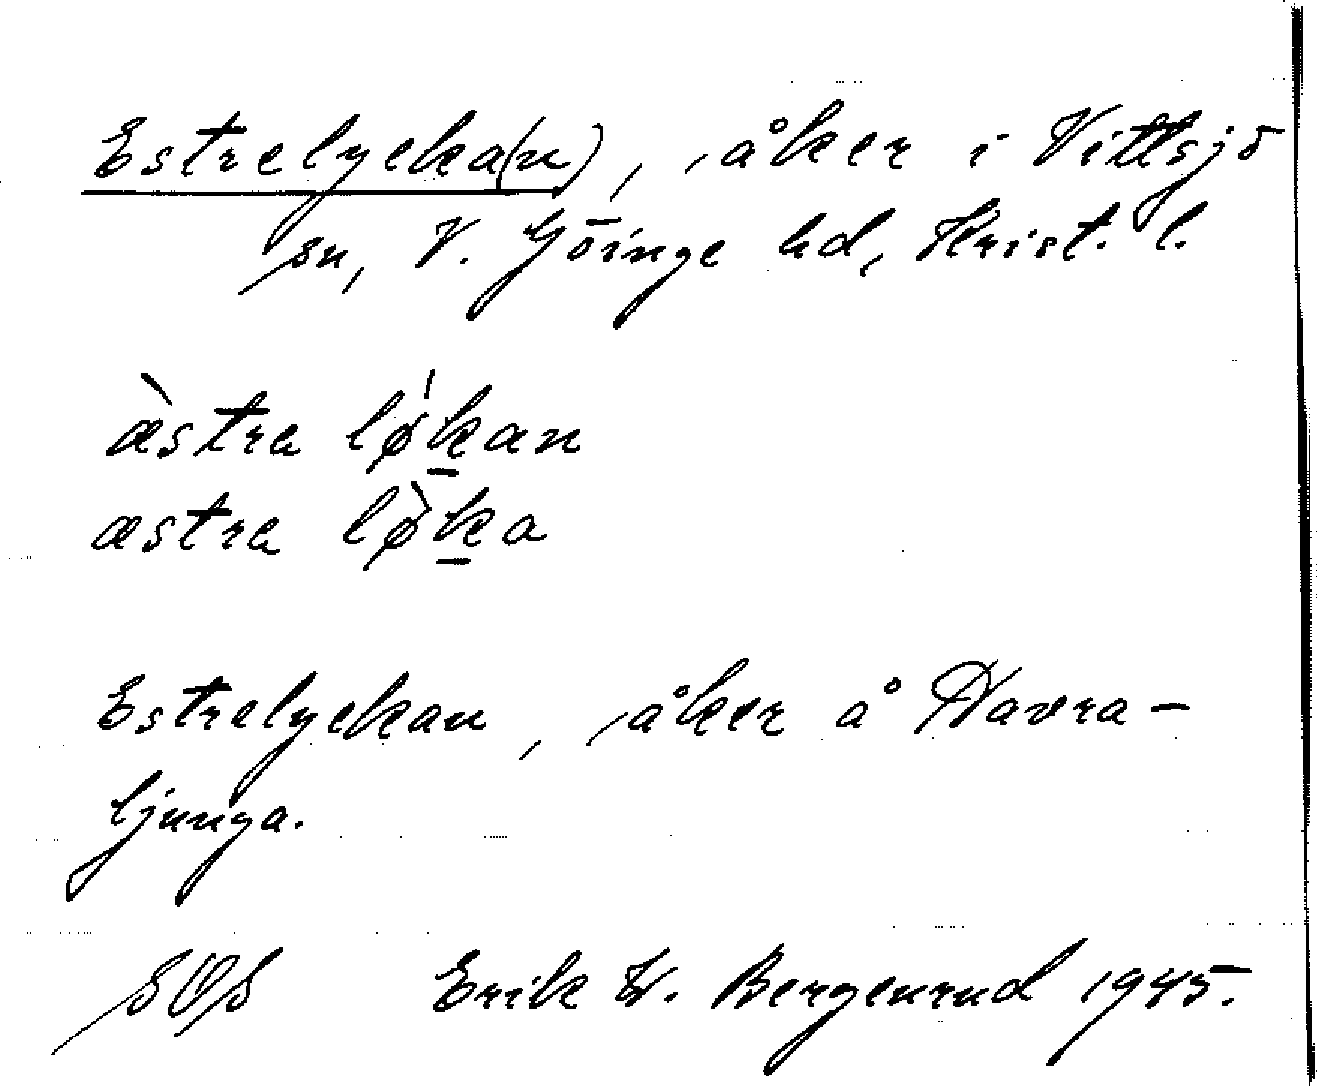 Estrelycka(n), åker i Vittsjö
sn, V. Göinge hd, Krist. l.
æ̀stra lø̍k̲an
æstra lø̀k̲a
Estrelyckan, åker å Havra-
ljunga.
SOS Erik W. Bergenrud 1945.